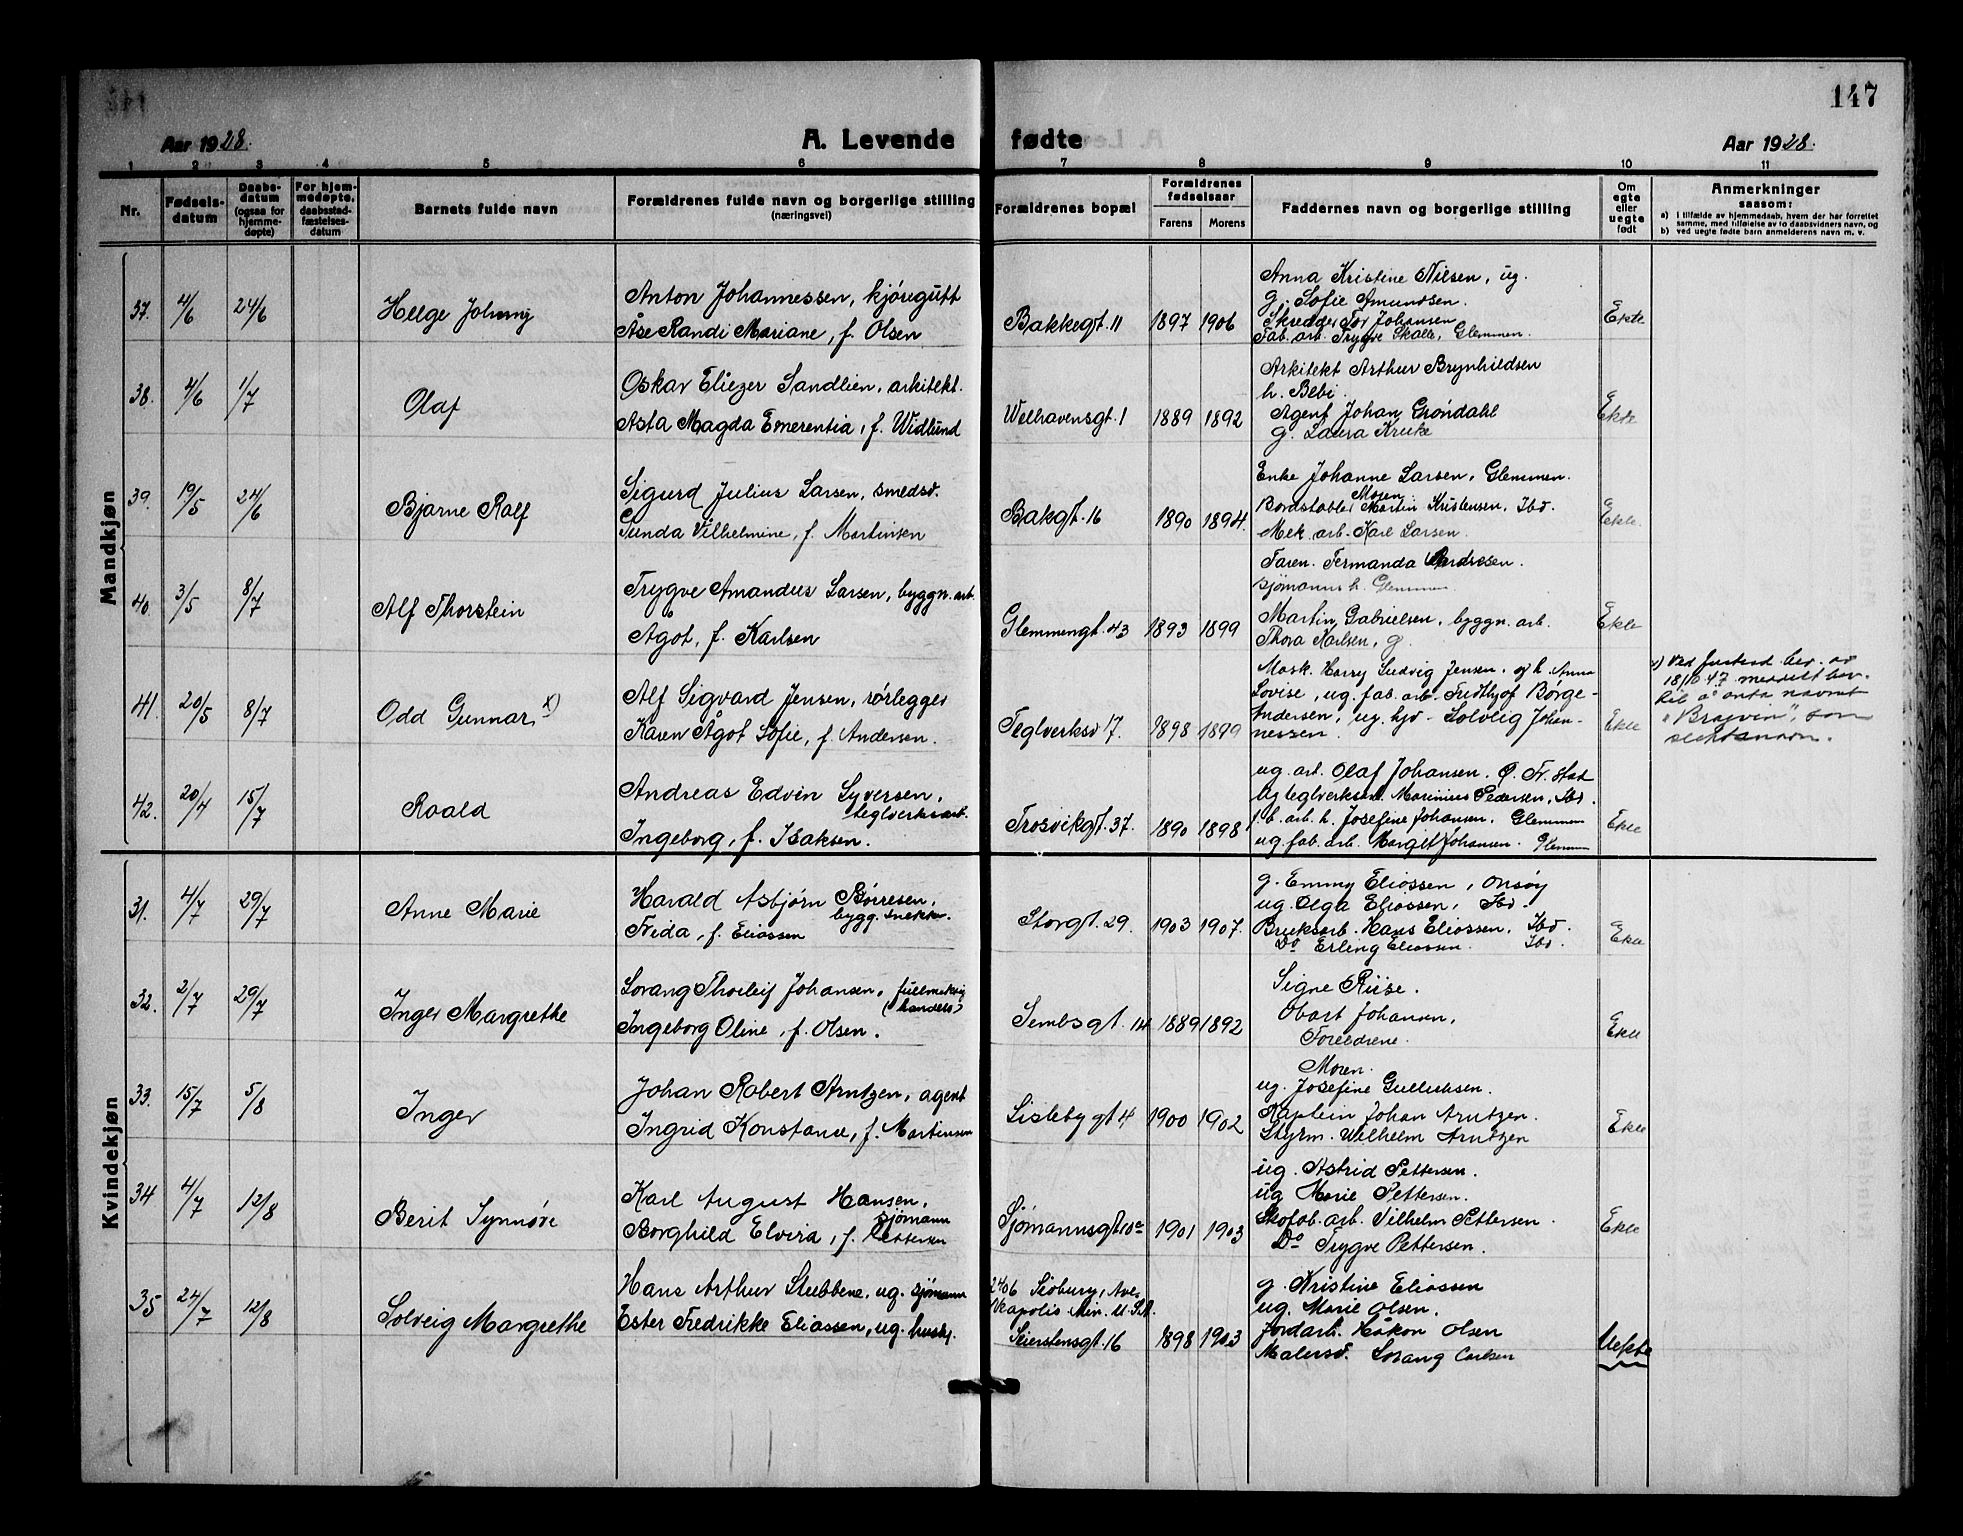 147
Aar 1928.
A. Levende fødte
Aar 1928.
1 2 3 4 5 6 7 8 9 10 11
Nr.
Fødsels-
datum
Daabs-
datum
(ogsaa for
hjemme-
døpte)
For hjem-
medøpte,
daabsstad-
fæstelses-
datum
Barnets fulde navn
Forældrenes fulde navn og borgerlige stilling
(næringsvei)
Forældrenes bopæl
Forældrenes
fødselsaar
Farens Morens
Faddernes navn og borgerlige stilling
Om
egte
eller
uegte
født
Anmerkninger
saasom:
a) i tilfælde av hjemmedaab, hvem der har forrettet
samme, med tilføielse av to daabsvidners navn, og
b) ved uegte fødte barn anmelderens navn m. v.
Mandkjøn
37. 4/6 24/6 Helge Johnny
Anton Johannessen, kjøregutt
Åse Randi Mariane, f. Olsen
Bakkegt. 11 1897 1906
Anna Kristine Nilsen, ug.
g. Sofie Amundsen.
Skredder Tor Johansen
Fab. arb. Trygve Skolle, Glemmen.
Ekte
38. 4/6 1/7 Olaf
Oskar Eliezer Sandlien, arkitekt.
Asta Magda Emerentia, f. Widlund
Welhavensgt. 1 1889 1892
Arkitekt Arthur Brynhildsen
h. Bebi.
Agent Johan Grøndahl
g. Laura Kruke
Ekte
39. 19/5 24/6 Bjarne Rolf
Sigurd Julius Larsen, smedsv.
Gunda Vilhelmine, f. Martinsen
Bakgt. 16 1890 1894.
Enke Johanne Larsen, Glemmen.
Moren.
Bordstabler Martin Kristensen, Ibd.
Mek. arb. Karl Larsen.
Ekte.
40. 3/5 8/7 Alf Thorstein
Trygve Amandus Larsen, byggn. arb.
Ågot, f. Karlsen
Glemmengt. 43 1893 1899
Faren. Fernanda Andresen.
sjømanns h. Glemmen
Martin Gabrielsen, byggn. arb.
Thora Karlsen, g.
Ekte
41. 20/5 8/7 Odd Gunnar x)
Alf Sigvard Jensen, rørlegger
Karen Ågot Sofie, f. Andersen.
Teglverksv 17. 1898 1899
Mask. Harry Ludvig Jensen, og h. Anna
Lovise, ug. fab. arb. Fridthjof Børge-
Andersen, ug. hjv. Solveig Johan-
nessen.
Ekte
x) Ved justisd. bev. av
18/10 47 meddelt bev.
til å anta navnet
"Brajvin", som
slektsnavn.
42. 20/4 15/7 Roald
Andreas Edvin Syversen,
teglverksarb.
Ingeborg, f. Isaksen.
Trosvikgt. 37. 1890 1898
ug. arb. Olaf Johansen. Ø. Fr. stad
Ug teglverksarb. Marinius Pedersen, Ibd.
f. b. arb. h. Josefine Johansen. Glemmen
ug. fab. arb. Margit Johansen. Glemmen
Ekte
Kvindekjøn
31. 4/7 29/7 Anne Marie
Harald Asbjørn Børresen,
bygg. snekker.
Frida, f. Eliassen
Storgt. 29. 1903 1907.
g. Emmy Eliassen, Onsøy
ug. Olga Eliassen, Ibd.
Bruksarb. Hans Eliassen, Ibd.
Do Erling Eliassen. Ibd.
Ekte
32. 2/7 29/7 Inger Margrethe
Lorang Thorleif Johansen, fullmektig
(handels)
Ingeborg Oline, f. Olsen.
Sembsgt. 14 1889 1892
Signe Riise.
Obart Johansen,
Foreldrene.
Ekte
33. 15/7 5/8 Inger
Johan Robert Arntzen, agent
Ingrid Konstanse, f. Martinsen
Lislebygt 4 1900 1902
Moren.
ug. Josefine Gulliksen.
Kaptein Johan Arntzen.
Styrm. Wilhelm Arntzen
Ekte
34 4/7 12/8 Berit Synnøve
Karl August Hansen,
sjømann
Borghild Elvira, f. Pettersen
Sjømannsgt 10a 1901 1903
ug. Astrid Pettersen.
ug Marie Pettersen.
Skofab. arb. Vilhelm Pettersen.
Do Trygve Pettersen.
Ekte
35 24/7 12/8 Solveig Margrethe
Hans Arthur Stubbene, ug. sjømann
Ester Fredrikke Eliassen, ug. hushj.
2406 Seobury, Ave.
Neapolis Min. U.S.A.
Seierstensgt. 16 1898 1903
g. Kristine Eliassen
ug. Marie Olsen.
Jordarb. Håkon Olsen
Malersv. Lorang Carlsen
Uekte